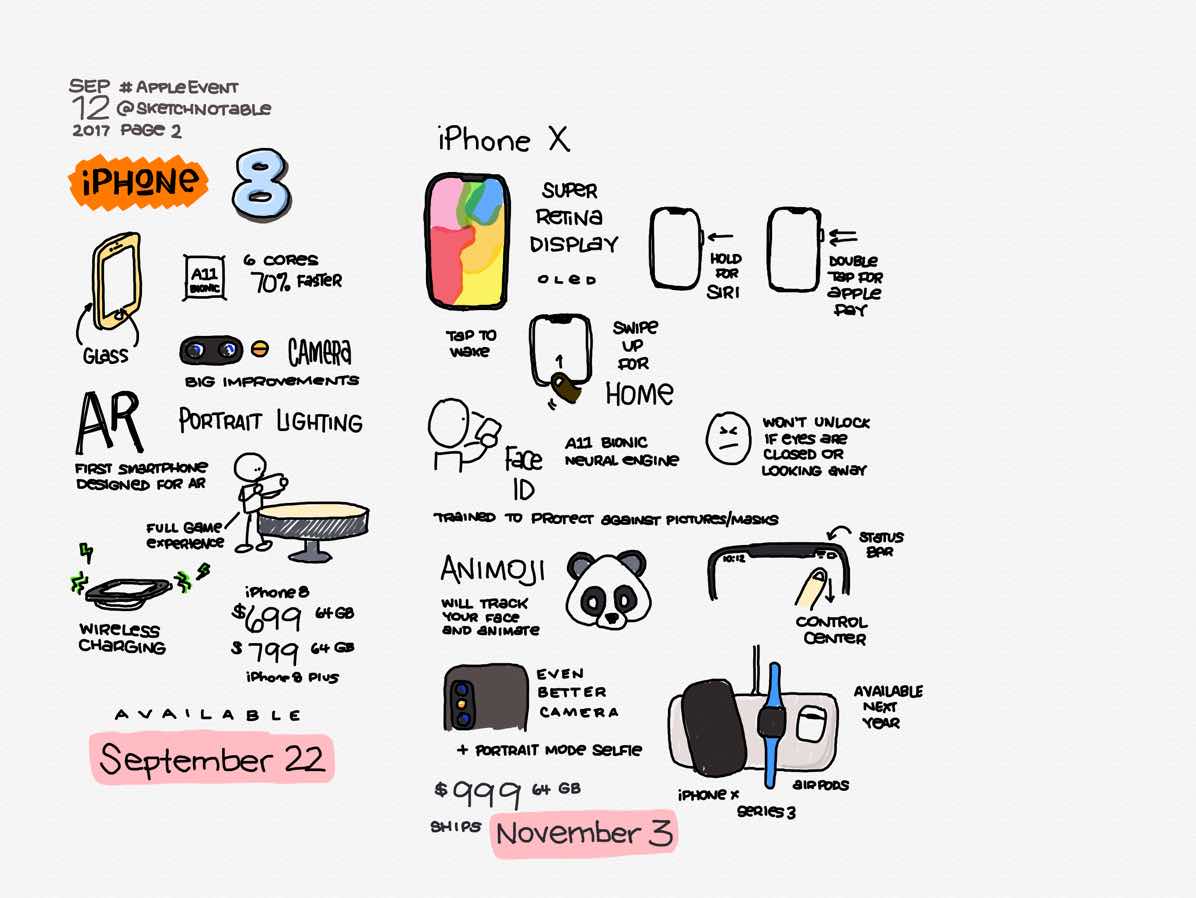 SEP #APPLEEVENT
12 @SKETCHNOTABLE
2017 PAGE 2
iPHONE 8
GLASS
A11
BIONIC
6 CORES
70% FASTER
CAMERA
BIG IMPROVEMENTS
AR
PORTRAIT LIGHTING
FIRST SMARTPHONE
DESIGNED FOR AR
FULL GAME
EXPERIENCE
WIRELESS
CHARGING
iPHONE 8
$699 64 GB
$799 64 GB
iPHONE 8 PLUS
AVAILABLE
September 22
iPhone X
SUPER
RETINA
DISPLAY
OLED
HOLD
FOR
SIRI
DOUBLE
TAP FOR
APPLE
PAY
TAP TO
WAKE
SWIPE
UP
FOR
HOME
FACE
ID
A11 BIONIC
NEURAL ENGINE
WON'T UNLOCK
IF EYES ARE
CLOSED OR
LOOKING AWAY
TRAINED TO PROTECT AGAINST PICTURES/MASKS
ANIMOJI
WILL TRACK
YOUR FACE
AND ANIMATE
10:12
STATUS
BAR
CONTROL
CENTER
EVEN
BETTER
CAMERA
+ PORTRAIT MODE SELFIE
AVAILABLE
NEXT
YEAR
iPHONE X
SERIES 3
AIRPODS
$999 64 GB
SHIPS November 3